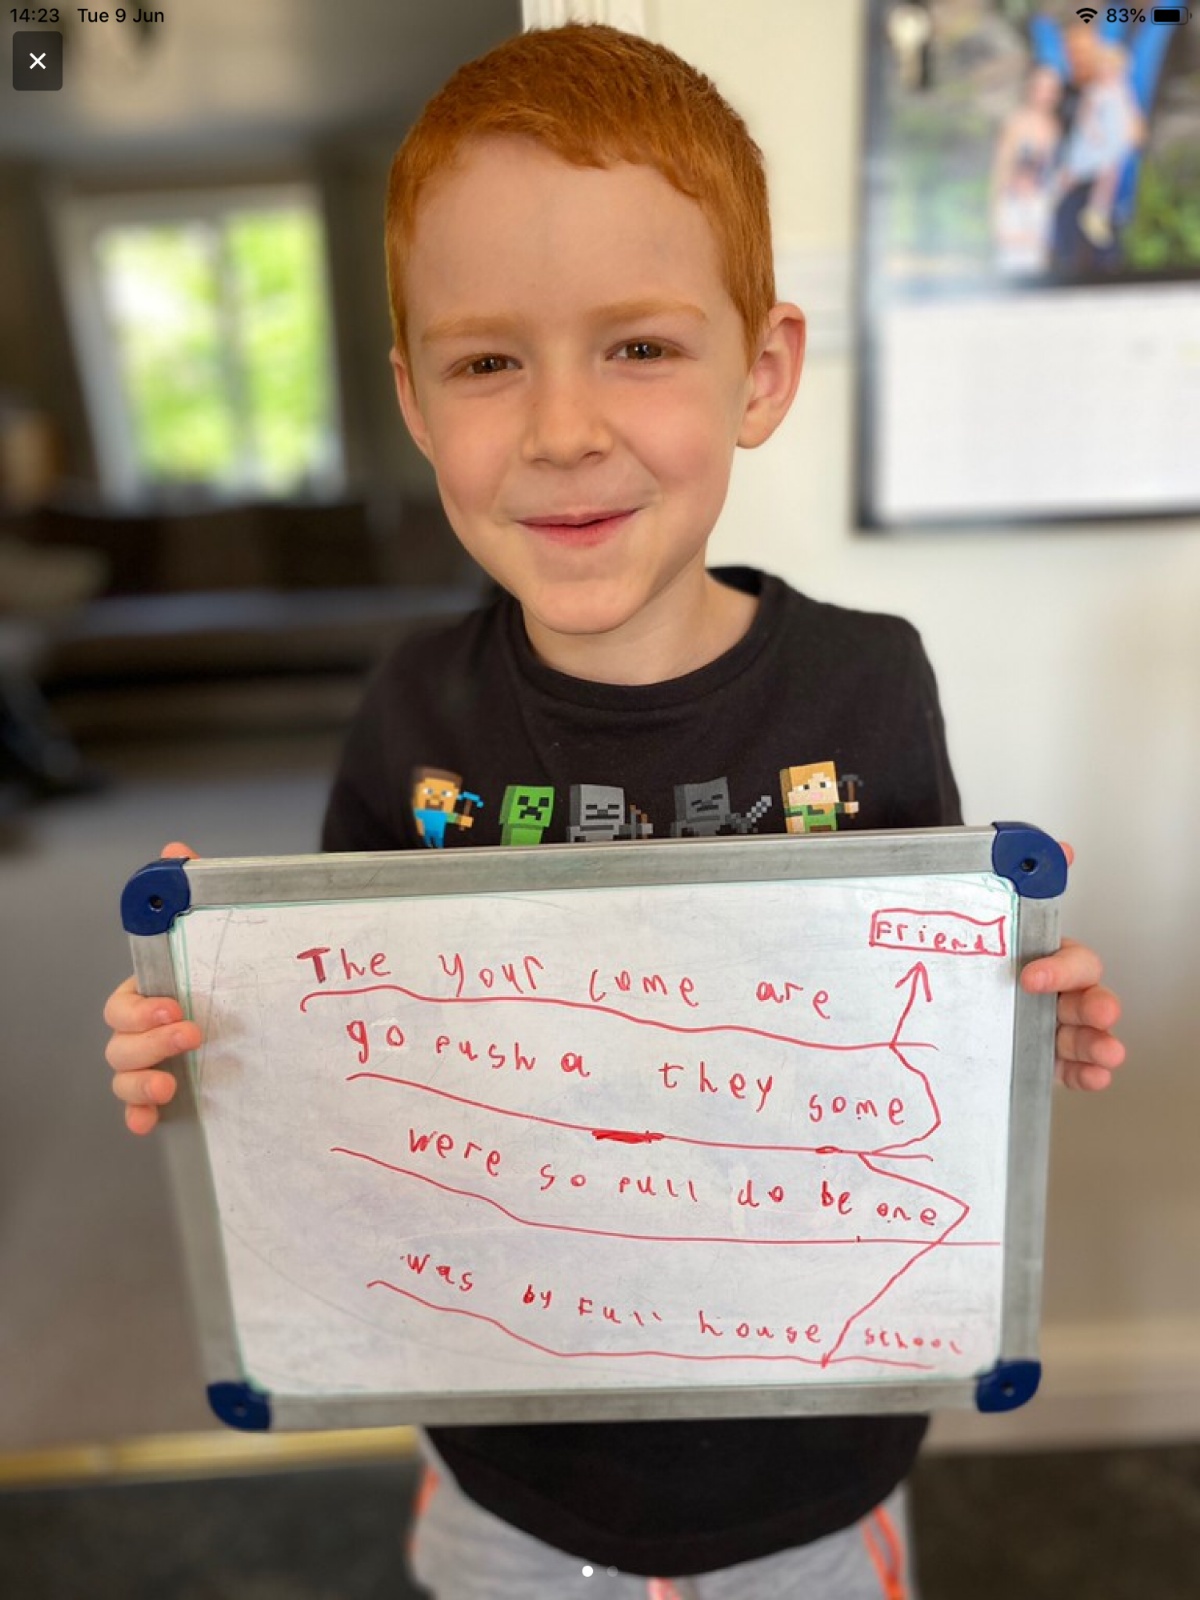 14:23 Tue 9 Jun 83%
Friend
The your come are
go push a they some
were so pull do be one
was by Full house school